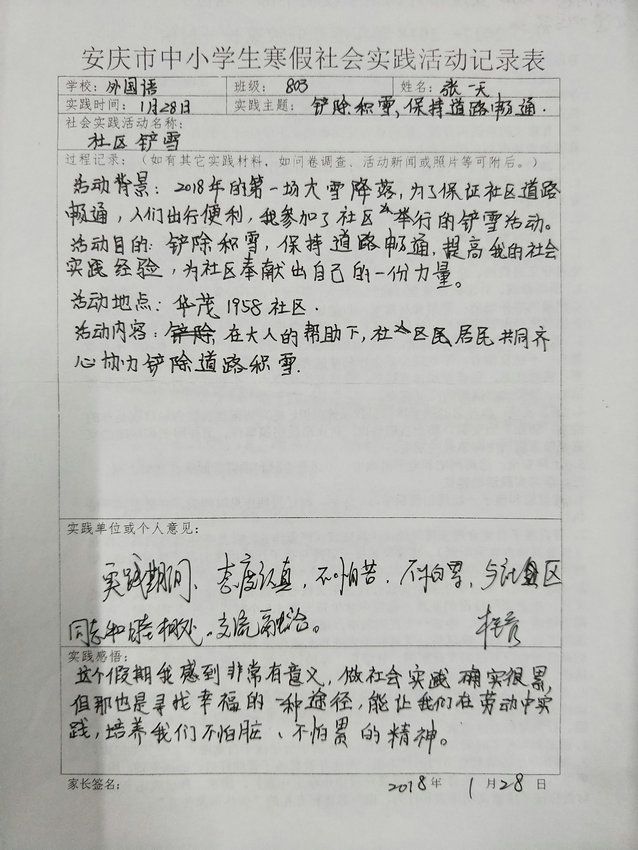 安庆市中小学生寒假社会实践活动记录表
学校：外国语 班级：803 姓名：张一天
实践时间：1月28日 实践主题：铲除积雪,保持道路畅通.
社会实践活动名称：
社区铲雪
过程记录：（如有其它实践材料，如问卷调查、活动新闻或照片等可附后。）
活动背景：2018年的第一场大雪降落,为了保证社区道路
畅通,人们出行便利,我参加了社区举行的铲雪活动。
活动目的：铲除积雪,保持道路畅通,提高我的社会
实践经验,为社区奉献出自己的一份力量。
活动地点：华茂1958社区.
活动内容：铲除在大人的帮助下,社区民居民共同齐
心协力铲除道路积雪.
实践单位或个人意见：
实践期间、态度认真，不怕苦，不怕累，与社区
同志和睦相处。交流融洽。
实践感悟：
这个假期我感到非常有意义,做社会实践确实很累,
但那也是寻找幸福的一种途径,能让我们在劳动中实
践,培养我们不怕脏、不怕累的精神。
家长签名： 2018年 1月28日